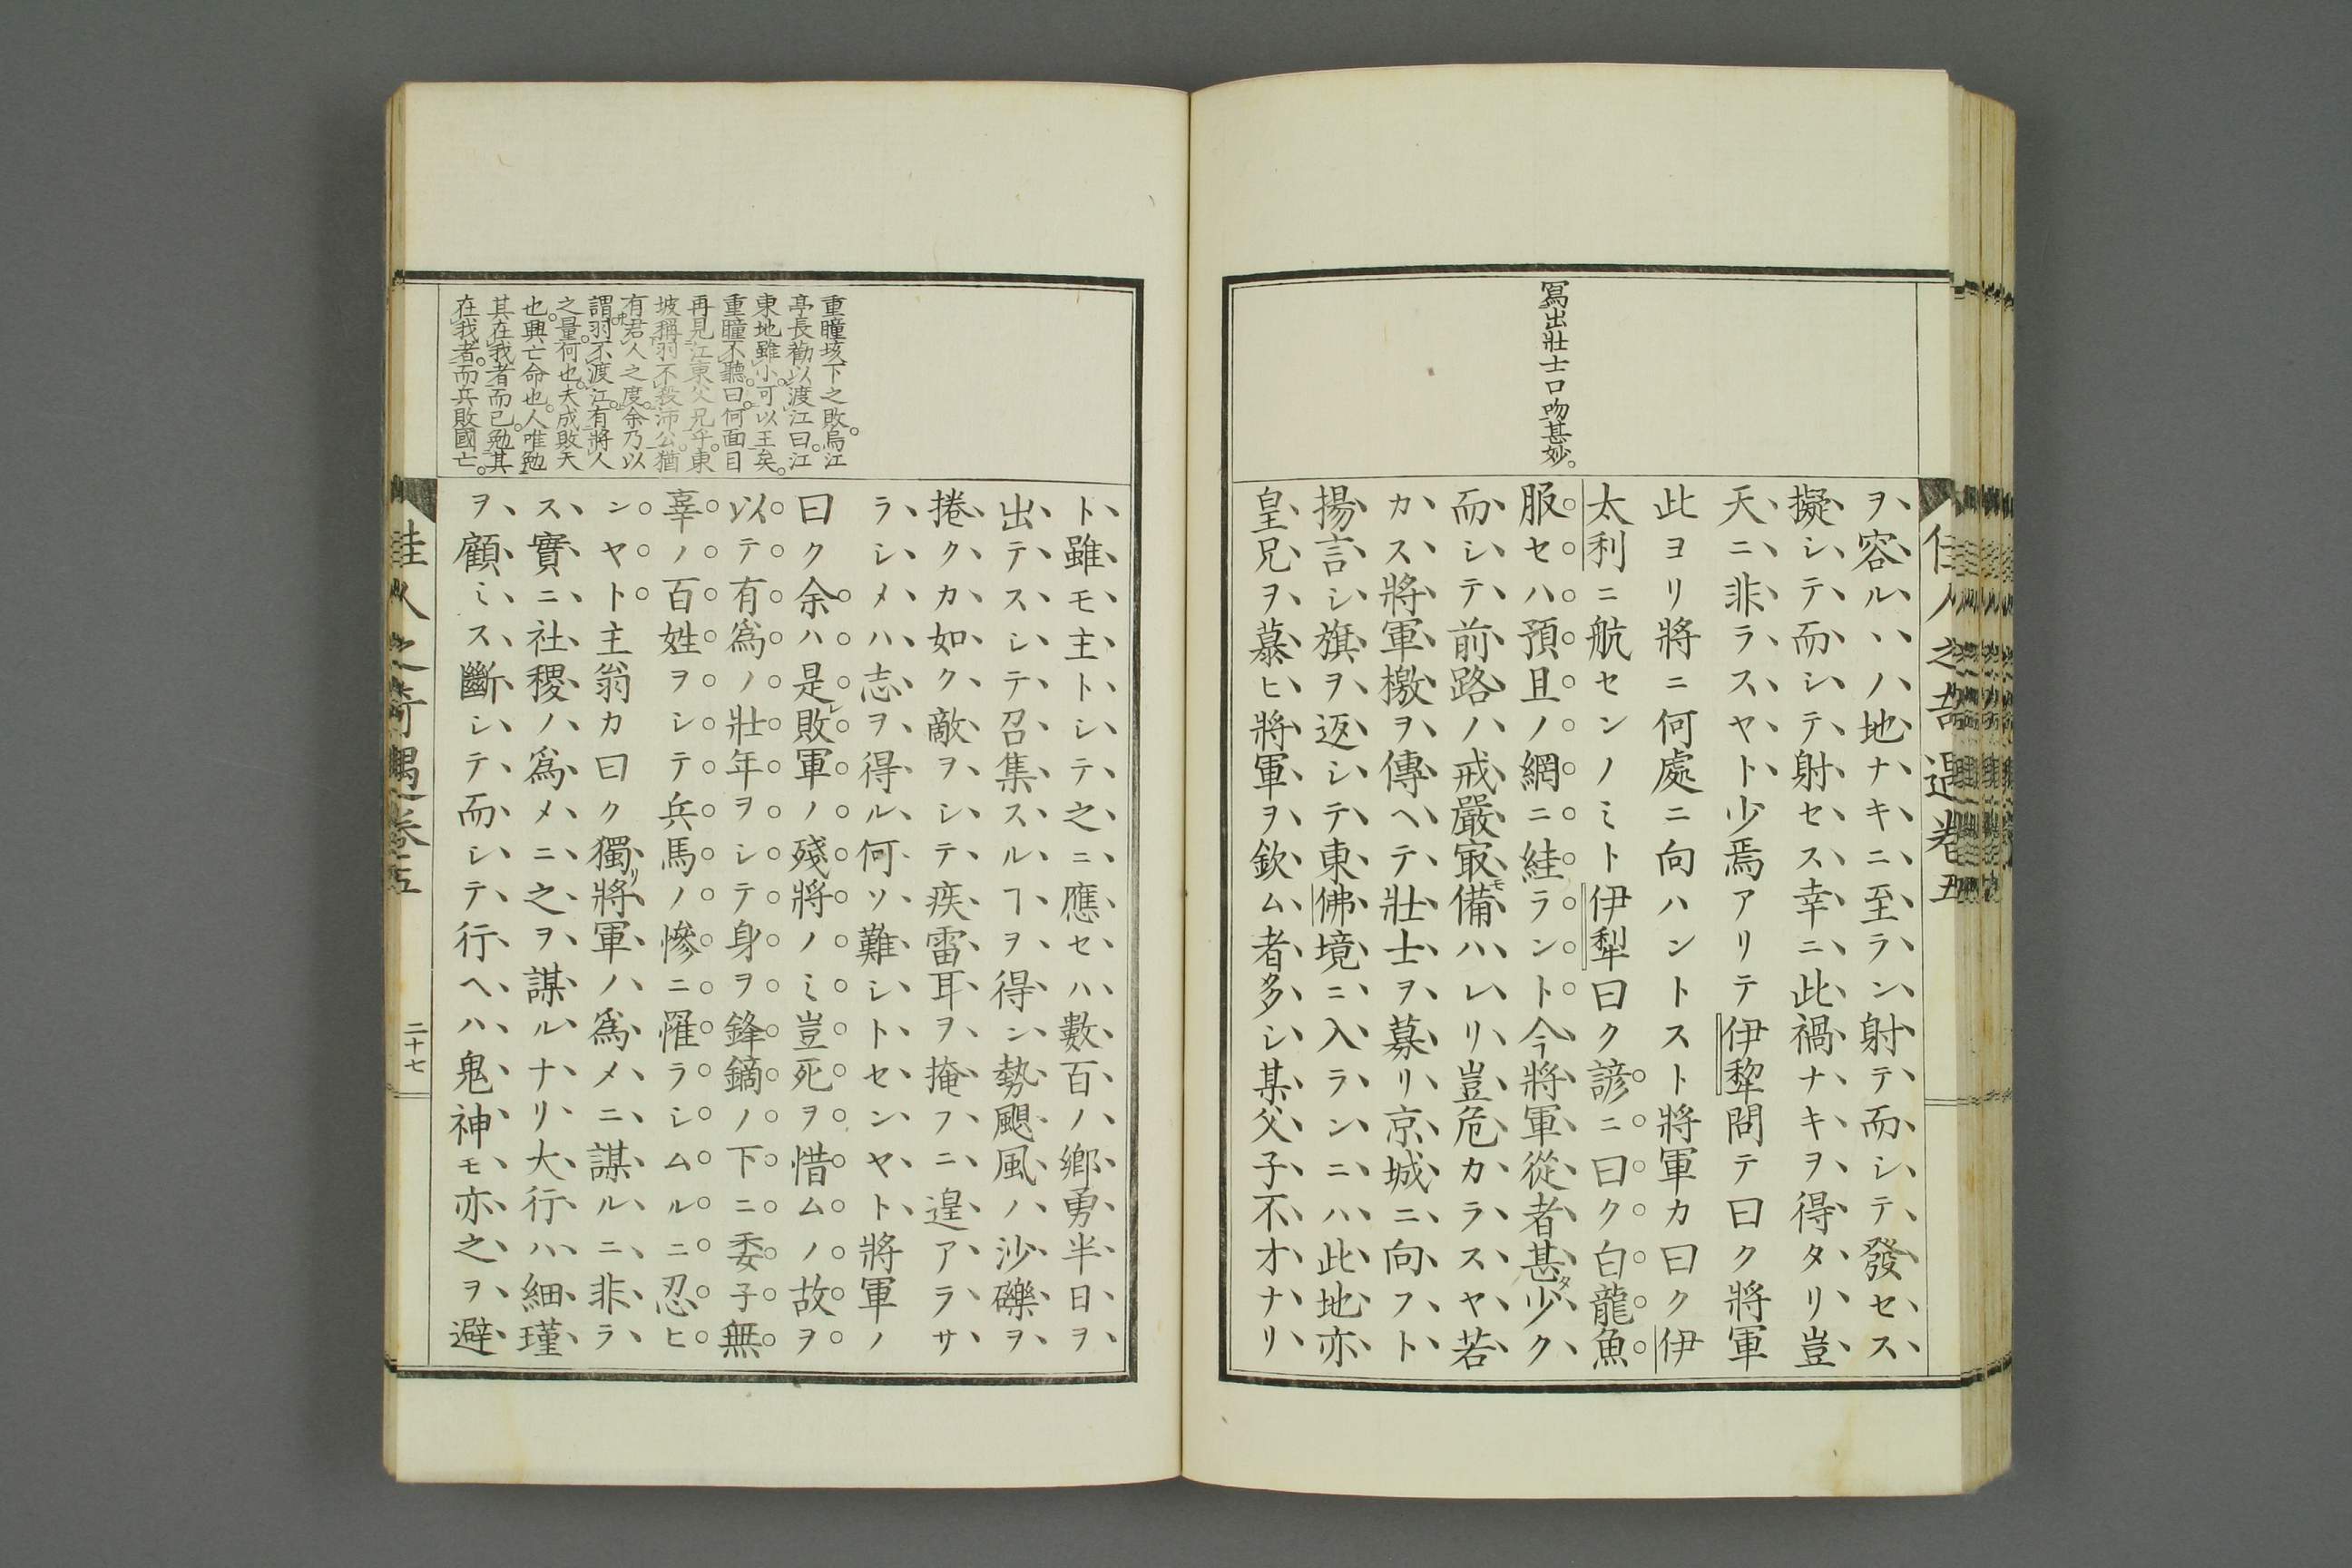 寫出壯士口吻甚妙。
ヲ容ルヽノ地ナキニ至ラン射テ而シテ發セス
擬シテ而シテ射セス幸ニ此禍ナキヲ得タリ豈
天ニ非ラスヤト少焉アリテ伊犂問テ曰ク將軍
此ヨリ將ニ何處ニ向ハントスト將軍カ曰ク伊
太利ニ航センノミト伊犁曰ク諺ニ曰ク白龍魚
服セハ預且ノ網ニ絓ラント今將軍從者甚タ少ク
而シテ前路ノ戒嚴㝡モ備ハレリ豈危カラスヤ若
カス將軍檄ヲ傳ヘテ壯士ヲ募リ京城ニ向フト
揚言シ旗ヲ返シテ東佛境ニ入ランニハ此地亦
皇兄ヲ慕ヒ將軍ヲ欽ム者多シ某父子不才ナリ
佳人之奇遇卷五
重瞳垓下之敗。烏江
亭長勸以渡江曰。江
東地雖小。可以王矣。
重瞳不聽。曰。何面目
再見江東父兄乎。東
坡稱羽不殺沛公。猶
有君人之度。余乃以
謂羽不渡江。有將人
之量。何也。夫成敗天
也。興亡命也。人唯勉
其在我者而已。勉其
在我者。而兵敗國亡。
ト雖モ主トシテ之ニ應セハ數百ノ鄕勇半日ヲ
出テスシテ召集スルヿヲ得ン勢颶風ノ沙礫ヲ
捲クカ如ク敵ヲシテ疾雷耳ヲ掩フニ遑アラサ
ラシメハ志ヲ得ル何ソ難シトセンヤト將軍ノ
曰ク余ハ是レ敗軍ノ殘將ノミ豈死ヲ惜ムノ故ヲ
以テ有爲ノ壯年ヲシテ身ヲ鋒鏑ノ下ニ委子無
辜ノ百姓ヲシテ兵馬ノ慘ニ罹ラシムルニ忍ヒ
ンヤト主翁カ曰ク獨リ將軍ノ爲メニ謀ルニ非ラ
ス實ニ社稷ノ爲メニ之ヲ謀ルナリ大行ハ細瑾
ヲ顧ミス斷シテ而シテ行ヘハ鬼神モ亦之ヲ避
佳人之奇遇卷五
二十七